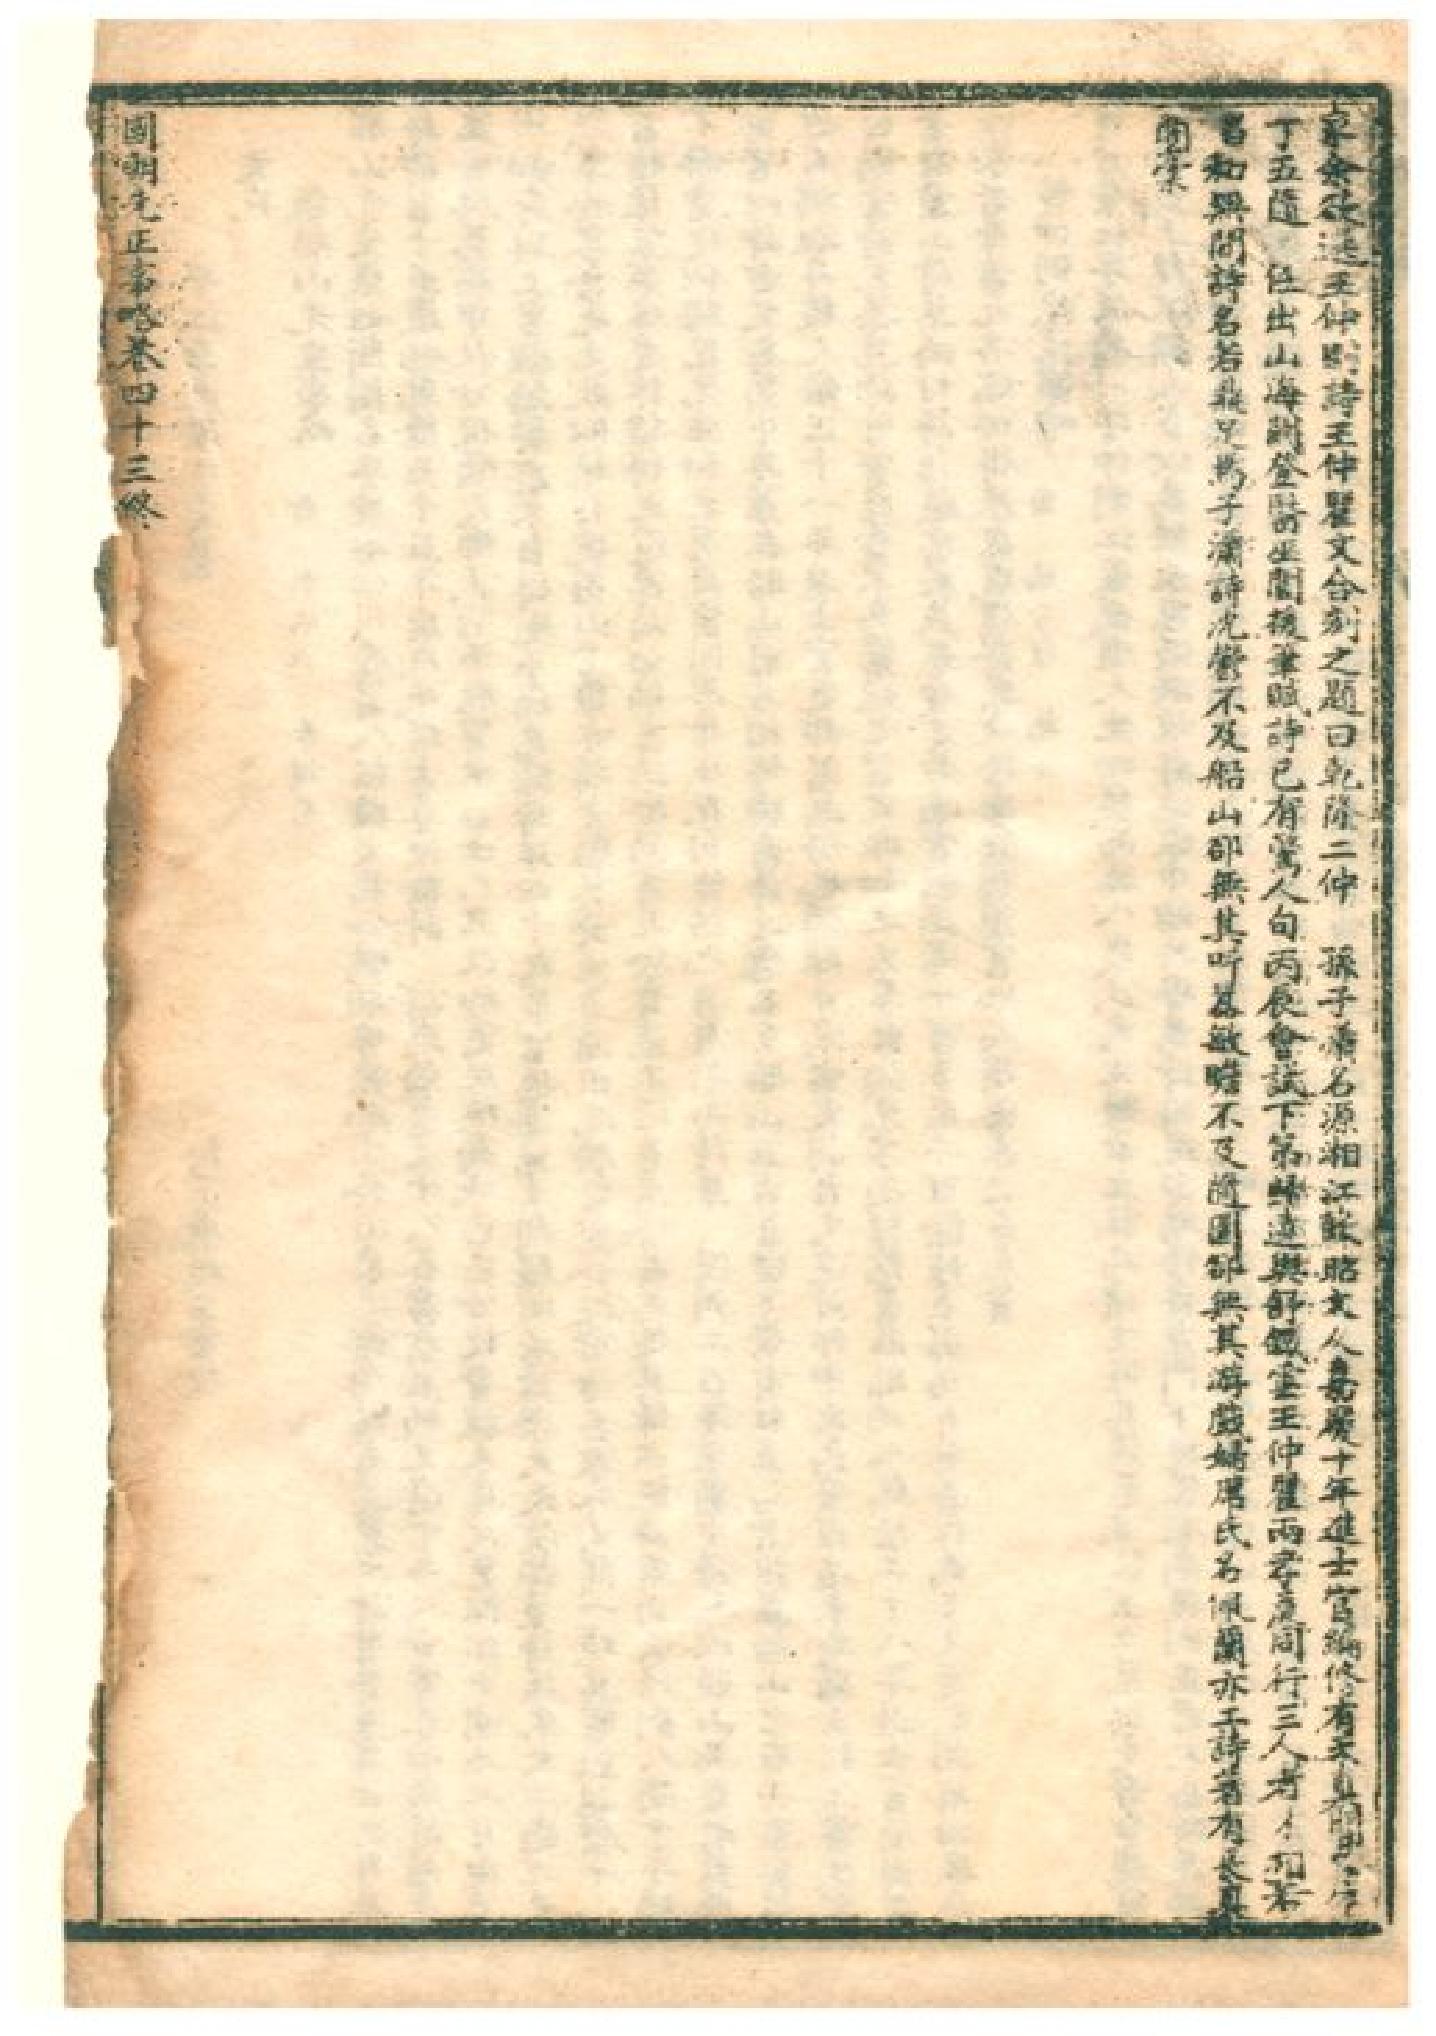 余欲選王仲瞿詩王仲瞿文合刻之題曰乾隆二仲　孫子瀟名源湘江蘇昭文人嘉慶十年進士官編修有天真閣
丁五隨　任出山海關登醫巫閭援筆賦詩已有驚人句丙辰會試下第歸遂與舒鐵雲王仲瞿兩孝廉同行三人者
唱和興間詩名若鼎足焉子瀟詩沈鬱不及船山卻無其叫囂敏贍不及隨園卻無其游戲婦席氏名佩蘭亦工詩著有長真
閣稾
國朝先正事略卷四十三終